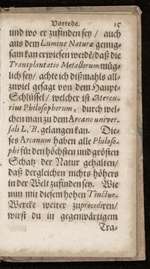 Vorrede. 15
und wo er zufinden sey / auch
aus dem Lumine Naturæ genug-
sam kan erwiesen werdẽ/ daß die
Transplutatio Metallorum müg-
lich sey/ achte ich dißmahls all-
zuviel gesagt von dem Haupt-
Schlüssel/ welcher ist
Philosophorum, durch wel-
chen man zu dem Arcano univer-
sali L. B. gelangen kan. Die-
ses Arcanum haben alle Philoso-
phi für den höchsten und grösten
Schatz der Natur gehalten/
daß dergleichen nichts höhers
in der Welt zufinden sey. Wie
nun mit diesem hohen Tinctur-
Wercke weiter zuprocediren/
wirst du in gegenwärtigem
Tra-